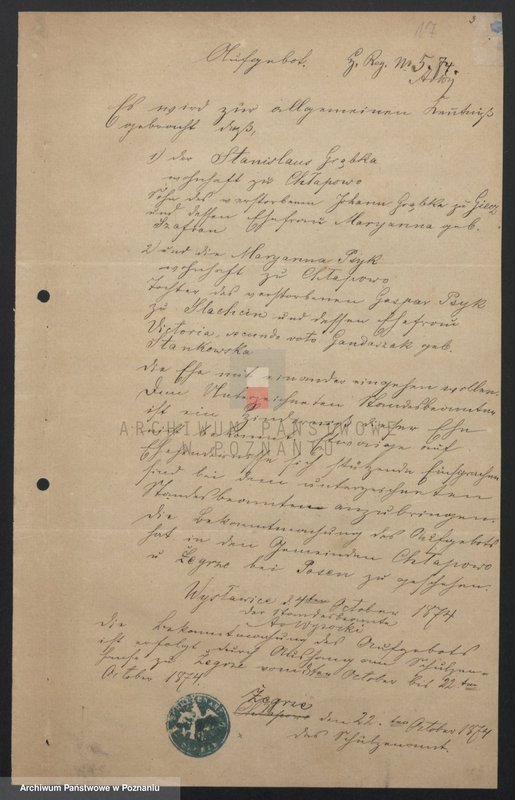 17
3
Aufgebot. H. Reg. No 5. 74.
Es wird zur allgemeinen Kentniß
gebracht daß,
1) der Stanislaus Grąbka
wohnhaft zu Chłapowo
Sohn des verstorbenen Johann Grąbka zu Giecz
und dessen Ehefrau Maryanna geb.
Szafran
2) und die Maryanna Psyk
wohnhaft zu Chłapowo
Tochter des verstorbenen Gaspar Psyk
zu Stachcin und dessen Ehefrau
Victoria, secundo voto Gandaszak geb.
Stankowska
die Ehe mit einander eingehen wollen.
Dem Unterzeichneten Standesbeamten
ist ein Hinderniß dieser Ehe
nicht bekannt. Etwaige auf
Ehehindernisse sich stützende Einsprachen
sind bei dem unterzeichneten
Standesbeamten anzubringen.
Die Bekanntmachung des Aufgebots
hat in den Gemeinden Chłapowo
u Żegrze bei Posen zu geschehen.
Wysławice d. 4ten October 1874
der Standesbeamte
Wysocki
Die Bekanntmachung des Aufgebots
ist erfolgt durch Aushang am Schulzen-
hause zu Żegrze vom 8ten October bis 22 ten
October 1874
Żegrze
Chłapowo den 22. ten October 1874
das Schulzenamt
ARCHIWUM PAŃSTWOWE
W POZNANIU
Archiwum Państwowe w Poznaniu